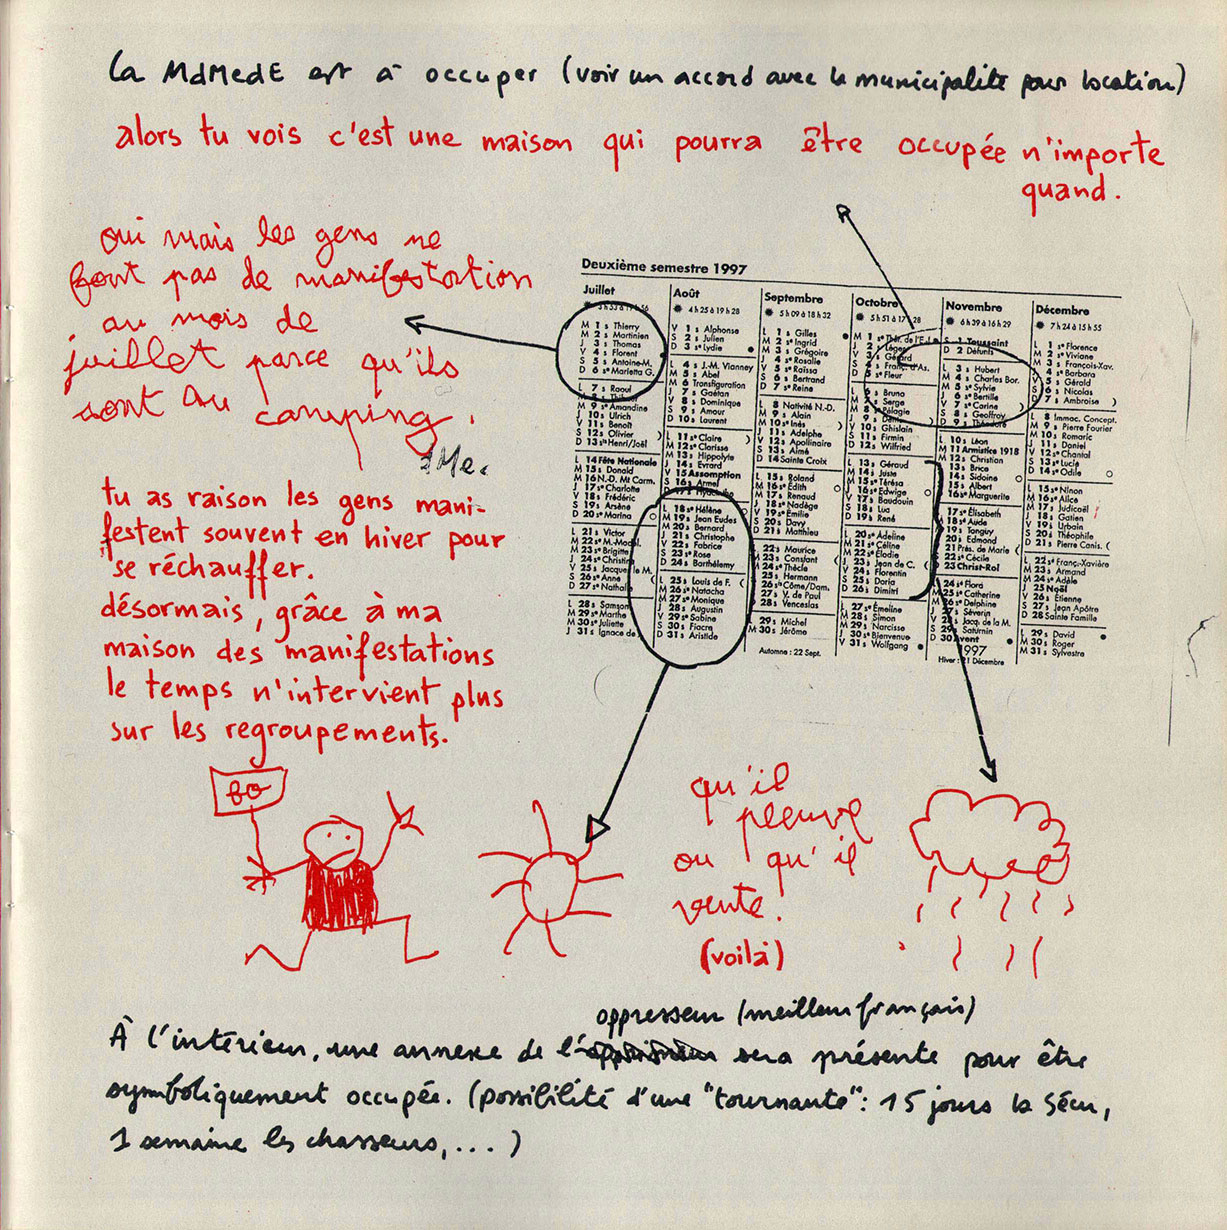 la MdMedE est à occuper (voir un accord avec la municipalité pour location)
alors tu vois c'est une maison qui pourra être occupée n'importe
quand.
oui mais les gens ne
font pas de manifestation
au mois de
juillet parce qu'ils
sont au camping.
tu as raison les gens mani-
festent souvent en hiver pour
se réchauffer.
désormais, grâce à ma
maison des manifestations
le temps n'intervient plus
sur les regroupements.
Deuxième semestre 1997
Juillet
M 1 s Thierry
M 2 s Martinien
J 3 s Thomas
V 4 s Florent
S 5 s Antoine-M.
D 6 se Marietta G.
L 7 s Raoul
M 9 se Amandine
J 10 s Ulrich
V 11 s Benoît
S 12 s Olivier
D 13 ss Henri/Joël
L 14 Fête Nationale
M 15 s Donald
M 16 N.-D. Mt Carm.
J 17 se Charlotte
V 18 s Frédéric
S 19 s Arsène
D 20 se Marina
L 21 s Victor
M 22 se M.-Mad.
M 23 se Brigitte
J 24 se Christine
V 25 s Jacques le M.
S 26 se Anne
D 27 se Nathalie
L 28 s Samson
M 29 se Marthe
M 30 se Juliette
J 31 s Ignace de
Août
4 h 25 à 19 h 28
V 1 s Alphonse
S 2 s Julien
D 3 se Lydie
L 4 s J.-M. Vianney
M 5 s Abel
M 6 Transfiguration
J 7 s Gaétan
V 8 s Dominique
S 9 s Amour
D 10 s Laurent
L 11 se Claire
M 12 se Clarisse
M 13 s Hippolyte
J 14 s Evrard
V 15 Assomption
S 16 s Armel
D 17 s Hyacinthe
L 18 se Hélène
M 19 s Jean Eudes
M 20 s Bernard
J 21 s Christophe
V 22 s Fabrice
S 23 se Rose
D 24 s Barthélemy
L 25 s Louis de F.
M 26 se Natacha
M 27 se Monique
J 28 s Augustin
V 29 se Sabine
S 30 s Fiacre
D 31 s Aristide
Septembre
5 h 09 à 18 h 32
L 1 s Gilles
M 2 se Ingrid
M 3 s Grégoire
J 4 se Rosalie
V 5 se Raïssa
S 6 s Bertrand
D 7 se Reine
L 8 Nativité N.-D.
M 9 s Alain
M 10 se Inès
J 11 s Adelphe
V 12 s Apollinaire
S 13 s Aimé
D 14 Sainte Croix
L 15 s Roland
M 16 se Édith
M 17 s Renaud
J 18 se Nadège
V 19 se Émilie
S 20 s Davy
D 21 s Matthieu
L 22 s Maurice
M 23 s Constant
M 24 se Thècle
J 25 s Hermann
V 26 ss Côme/Dam.
S 27 s V. de Paul
D 28 s Venceslas
L 29 s Michel
M 30 s Jérôme
Automne : 22 Sept.
Octobre
5 h 51 à 17 h 28
M 1 se Thér. de l'E.-J.
J 2 s Léger
V 3 s Gérard
S 4 s Franç. d'As.
D 5 se Fleur
L 6 s Bruno
M 7 s Serge
M 8 se Pélagie
J 9 s Denis
V 10 s Ghislain
S 11 s Firmin
D 12 s Wilfried
L 13 s Géraud
M 14 s Juste
M 15 se Térésa
J 16 se Edwige
V 17 s Baudouin
S 18 s Luc
D 19 s René
L 20 se Adeline
M 21 se Céline
M 22 se Élodie
J 23 s Jean de C.
V 24 s Florentin
S 25 s Doria
D 26 s Dimitri
L 27 se Émeline
M 28 s Simon
M 29 s Narcisse
J 30 se Bienvenue
V 31 s Wolfgang
Novembre
6 h 39 à 16 h 29
S 1 Toussaint
D 2 Défunts
L 3 s Hubert
M 4 s Charles Bor.
M 5 se Sylvie
J 6 se Bertille
V 7 se Carine
S 8 s Geoffroy
D 9 s Théodore
L 10 s Léon
M 11 Armistice 1918
M 12 s Christian
J 13 s Brice
V 14 s Sidoine
S 15 s Albert
D 16 se Marguerite
L 17 se Élisabeth
M 18 se Aude
M 19 s Tanguy
J 20 s Edmond
V 21 Prés. de Marie
S 22 se Cécile
D 23 Christ-Roi
L 24 se Flora
M 25 se Catherine
M 26 se Delphine
J 27 s Séverin
V 28 s Jacq. de la M.
S 29 s Saturnin
D 30 Avent
997
Hiver : 21 Décembre
Décembre
7 h 24 à 15 h 55
L 1 se Florence
M 2 se Viviane
M 3 s François-Xav.
J 4 se Barbara
V 5 s Gérald
S 6 s Nicolas
D 7 s Ambroise
L 8 Immac. Concept.
M 9 s Pierre Fourier
M 10 s Romaric
J 11 s Daniel
V 12 se Chantal
S 13 se Lucie
D 14 se Odile
L 15 se Ninon
M 16 se Alice
M 17 s Judicaël
J 18 s Gatien
V 19 s Urbain
S 20 s Théophile
D 21 s Pierre Canis.
L 22 se Franç.-Xavière
M 23 s Armand
M 24 se Adèle
J 25 Noël
V 26 s Étienne
S 27 s Jean Apôtre
D 28 Sainte Famille
L 29 s David
M 30 s Roger
M 31 s Sylvestre
qu'il
pleuve
ou qu'il
vente.
(voilà)
oppresseur (meilleur français)
À l'intérieur, une annexe de l' sera présente pour être
symboliquement occupée. (possibilité d'une "tournante": 15 jours la Sécu,
1 semaine les chasseurs, ... )